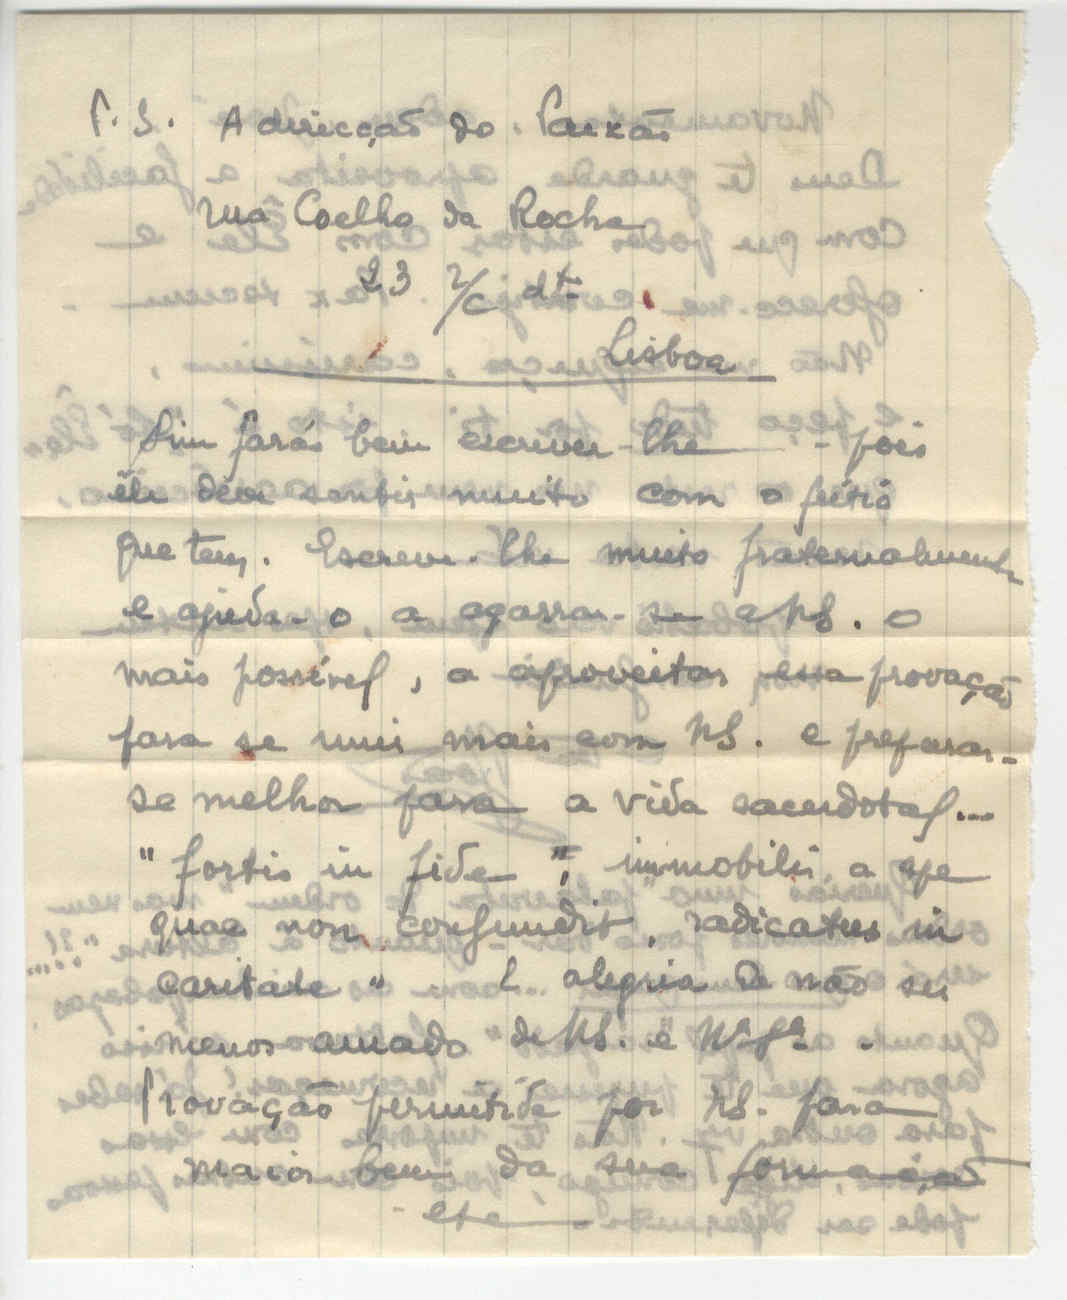 P.S. A direcção do Paixão
Rua Coelho da Rocha
23 r/c dto
Lisboa
Sim farás bem escrever-lhe - pois
êle deve sentir muito com o feitio
que tem. Escreve-lhe muito fraternalmente
e ajuda-o a agarrar-se a NS. o
mais possível, a aproveitar essa provação
para se unir mais com NS. e preparar-
se melhor para a vida sacerdotal...
"fortis in fide, immobilis a spe
quae non confundit, radicatus in
caritate" alegria de não ser
menos amado de NS. e Nª Sª.
Provação permitida por NS. para
maior bem da sua formação
etc